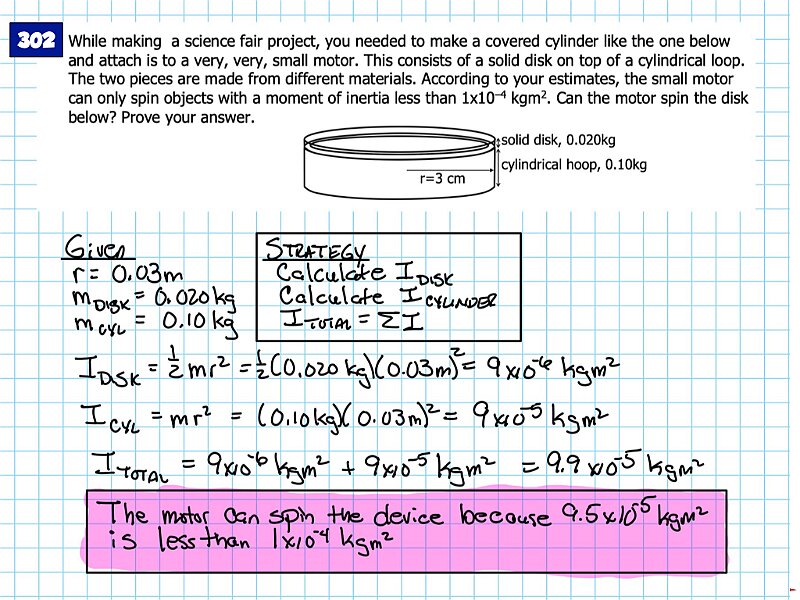 302
While making a science fair project, you needed to make a covered cylinder like the one below
and attach is to a very, very, small motor. This consists of a solid disk on top of a cylindrical loop.
The two pieces are made from different materials. According to your estimates, the small motor
can only spin objects with a moment of inertia less than 1x10⁻⁴ kgm². Can the motor spin the disk
below? Prove your answer.
solid disk, 0.020kg
cylindrical hoop, 0.10kg
r=3 cm
Given
r = 0.03m
m DISK = 0.020 kg
m CYL = 0.10 kg
STRATEGY
Calculate I DISK
Calculate I CYLINDER
I TOTAL = ΣI
I DISK = 1/2 mr² = 1/2 (0.020 kg)(0.03m)² = 9x10⁻⁶ kgm²
I CYL = mr² = (0.10kg)(0.03m)² = 9x10⁻⁵ kgm²
I TOTAL = 9x10⁻⁶ kgm² + 9x10⁻⁵ kgm² = 9.9x10⁻⁵ kgm²
The motor can spin the device because 9.5x10⁻⁵ kgm²
is less than 1x10⁻⁴ kgm²